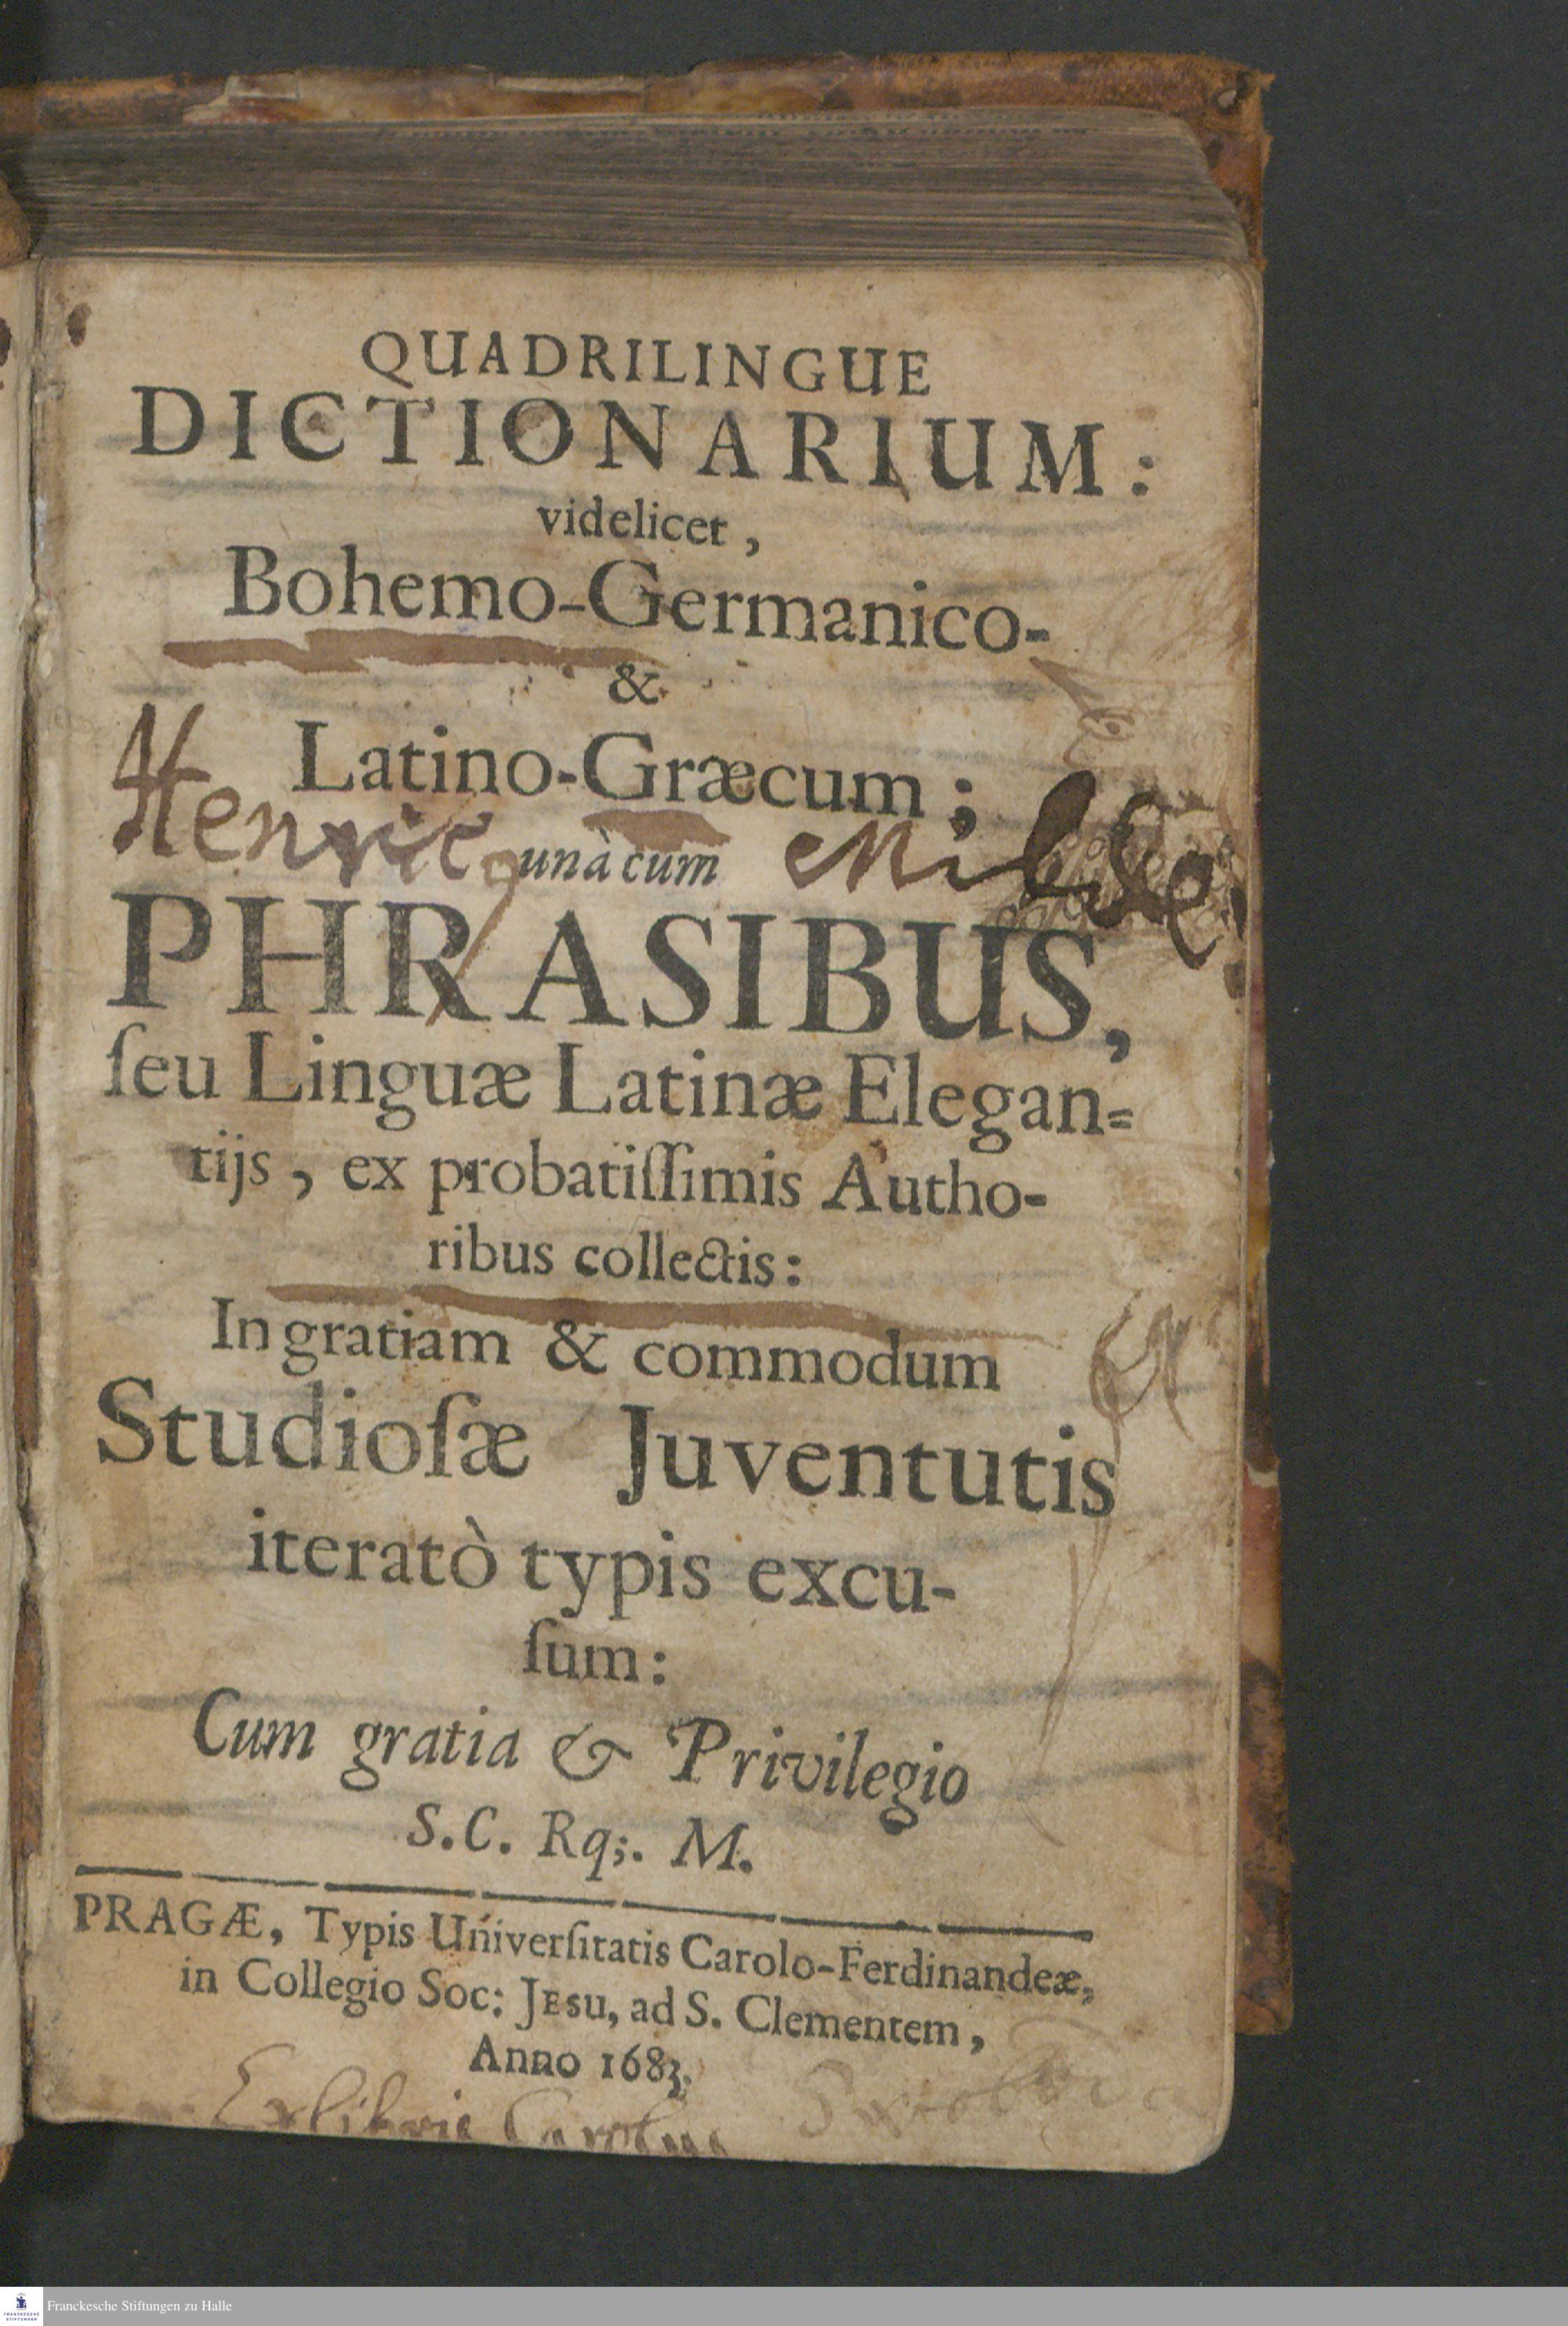 QUADRILINGUE
DICTIONARIUM:
videlicet,
Bohemo-Germanico-
&
Latino-Græcum;
Henric9
unà cum
PHRASIBUS,
ſeu Linguæ Latinæ Elegan=
tijs, ex probatiſſimis Autho-
ribus collectis:
In gratiam & commodum
Studioſæ Juventutis
iteratò typis excu-
ſum:
Cum gratia & Privilegio
S.C. Rq;. M.
PRAGÆ, Typis Univerſitatis Carolo-Ferdinandeæ,
in Collegio Soc: JESU, ad S. Clementem,
Anno 1683.
Ex libris Carolus
Franckesche Stiftungen zu Halle
FRANCKESCHE
STIFTUNGEN